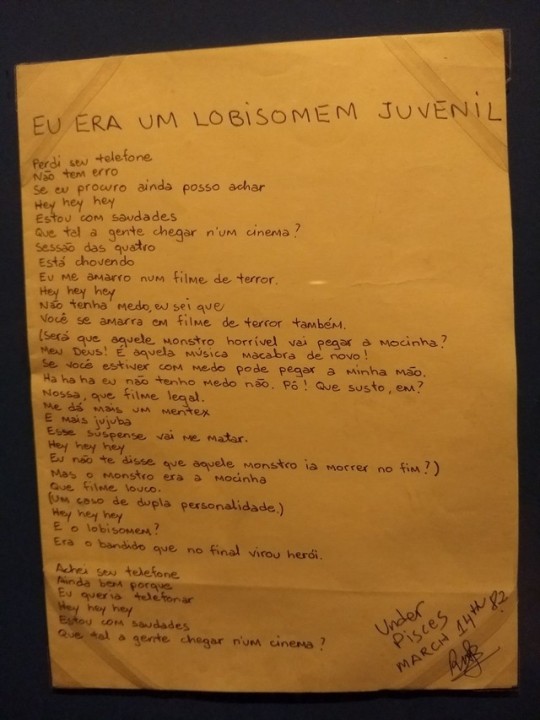 EU ERA UM LOBISOMEM JUVENIL
Perdi seu telefone
Não tem erro
Se eu procuro ainda posso achar
Hey hey hey
Estou com saudades
Que tal a gente chegar n'um cinema?
Sessão das quatro
Está chovendo
Eu me amarro num filme de terror.
Hey hey hey
Não tenha medo, eu sei que
Você se amarra em filme de terror também.
(Será que aquele monstro horrível vai pegar a mocinha?
Meu Deus! É aquela música macabra de novo!
Se você estiver com medo pode pegar a minha mão.
Ha ha ha eu não tenho medo não. Pô! Que susto, em?
Nossa, que filme legal.
Me dá mais um mentex
E mais jujuba
Esse suspense vai me matar.
Hey hey hey
Eu não te disse que aquele monstro ia morrer no fim?)
Mas o monstro era a mocinha
Que filme louco.
(Um caso de dupla personalidade.)
Hey hey hey
E o lobisomem?
Era o bandido que no final virou herói.
Achei seu telefone
Ainda bem porque
Eu queria telefonar
Hey hey hey
Estou com saudades
Que tal a gente chegar n'um cinema?
Under
Pisces
MARCH 14TH 82